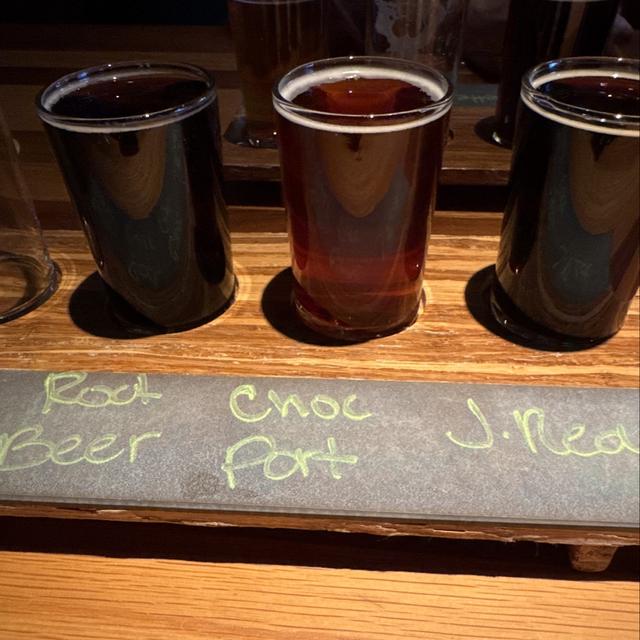 Root
Beer
Choc
Port
J.Red